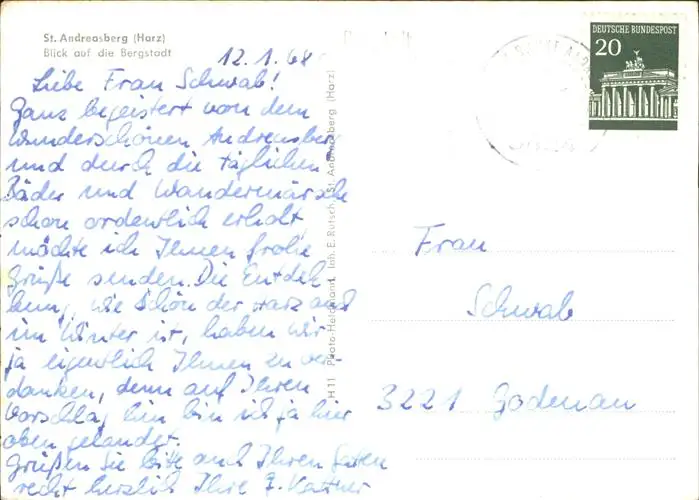 St. Andreasberg (Harz)
Blick auf die Bergstadt
12.1.68
Liebe Frau Schwab!
Ganz begeistert von dem
wunderschönen Andreasberg
und durch die täglichen
Bäder und Wandermärsche
schon ordentlich erholt,
möchte ich Ihnen frohe
Grüße senden. Die Entdek
kung, wie schön der Harz auch
im Winter ist, haben wir
ja eigentlich Ihnen zu ver-
danken, denn auf Ihren
Vorschlag hin bin ich ja hier
oben gelandet.
Grüßen Sie bitte auch Ihren Gatten
recht herzlich Ihre
H 11 Photo-Heidmann, Inh. E. Rutsch, St. Andreasberg (Harz)
DEUTSCHE BUNDESPOST
20
Frau
Schwab
3221 Godenau